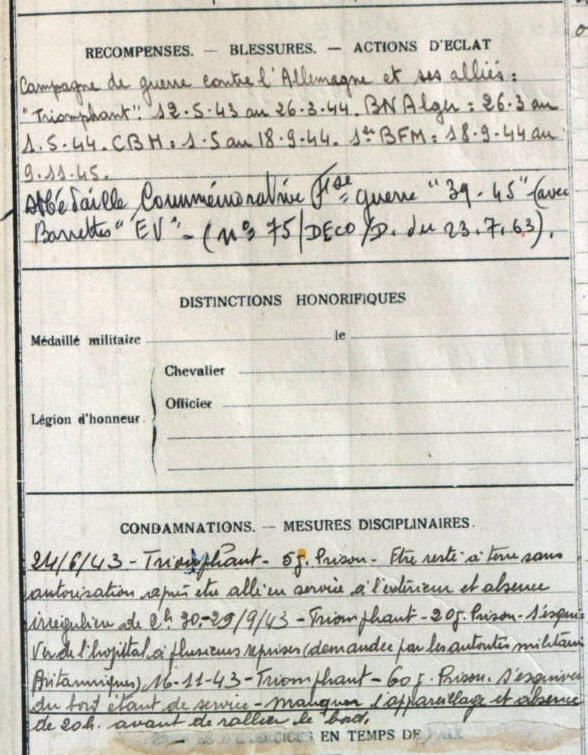 RECOMPENSES. — BLESSURES. — ACTIONS D'ECLAT
Campagne de guerre contre l'Allemagne et ses alliés :
"Triomphant" : 12.5.43 au 26.3.44. BN Alger : 26.3 au
1.5.44. CBH : 1.5 au 18.9.44. 1er BFM : 18.9.44 au
9.11.45.
Médaille Commémorative Fse guerre "39-45" (avec
Barrettes "EV" - (n° 75/DECO/D. du 23.7.63).
DISTINCTIONS HONORIFIQUES
Médaillé militaire le
Chevalier
Officier
Légion d'honneur.
CONDAMNATIONS. — MESURES DISCIPLINAIRES.
24/6/43 - Triomphant - 5 j. Prison - Etre resté à terre sans
autorisation après être allé en service à l'extérieur et absence
irrégulière de 2h 30 - 29/9/43 - Triomphant - 20 j. Prison - S'esqui-
ver de l'hopittal à plusieurs reprises (demandée par les autorités militaires
Britanniques) 16-11-43 - Triomphant - 60 j. Prison. S'esquiver
du bord étant de service - manquer l'appareillage et absence
de 20h. avant de rallier le bord.
EN TEMPS DE